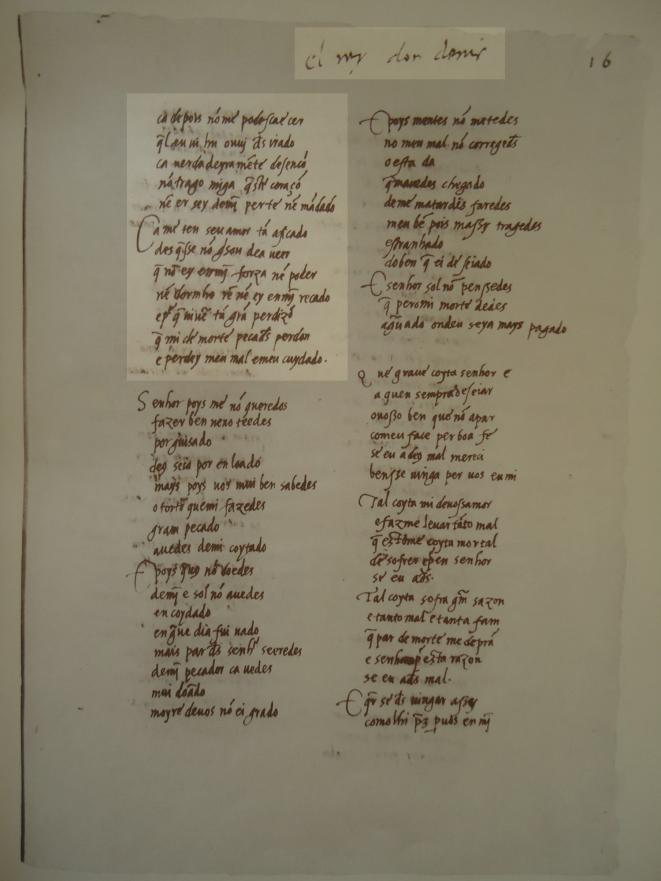 el rey don denis
16
ca depois nõ me pode prazer
ca uerdadeyramẽte desencõ
nõ trago miga
nẽ er sey demĩ perte nẽ mãdado
Ca me ten seu amor tã aficado
des q̃ sse nõ
q̃ nõ ey enmĩ forza nẽ poder
nẽ dormho rẽ nẽ ey enmĩ recado
e q̃ uiuẽ tã grã perdizõ
q̃ mi de morte pecad's perdon
e perdey meu mal e meu cuydado.
Senhor poys me nõ queredes
fazer ben neno teedes
por guisado
deg seia por en loado
mays poys uos mui ben sabedes
o torto quemi fazedes
gram pecado
auedes demi coytado
E poys que uos nõ doedes
demĩ e sol nõ auedes
en coydado
en graue dia fui nado
mais par d's senhor seeredes
demĩ pecador ca uedes
mui dõado
moyrẽ deuos nõ ei grado
E poys mentes nõ metedes
no meu mal nõ corregedes
o esta da
q̃ mauedes chegado
de me matardes faredes
meu bẽ pois massy tragedes
estranhado
do ben q̃ ei deseiado
E senhor sol nõ penssedes
q̃ pero mi morte dedes
aguado ondeu seya mays pagado
Que graue coyta senhor e
a quen sempra deseiar
o uosso ben que nõ a par
com eu face per boa fe
se eu a deg mal mereci
ben sse uinga per uos en mi
Tal coyta mi da uossamor
e faz me leuar tãto mal
q̃ esto me coyta mortal
de sofrer e por en senhor
se eu ad's.
Tal coyta sofra grã sazon
e tanto mal e tanta fam
q̃ par de morte me deprã
e senhor por esta razon
se eu ad's mal.
E qr se d's uingar assy
como lhi prz por uos en mĩ